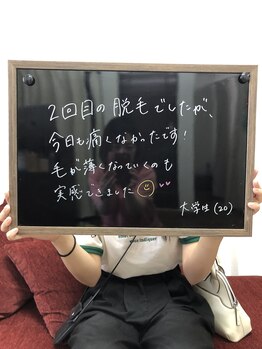 2回目の脱毛でしたが、
今日も痛くなかったです!
毛が薄くなっていくのも
実感できました
大学生(20)